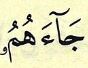 جَآءَهُمُۥ